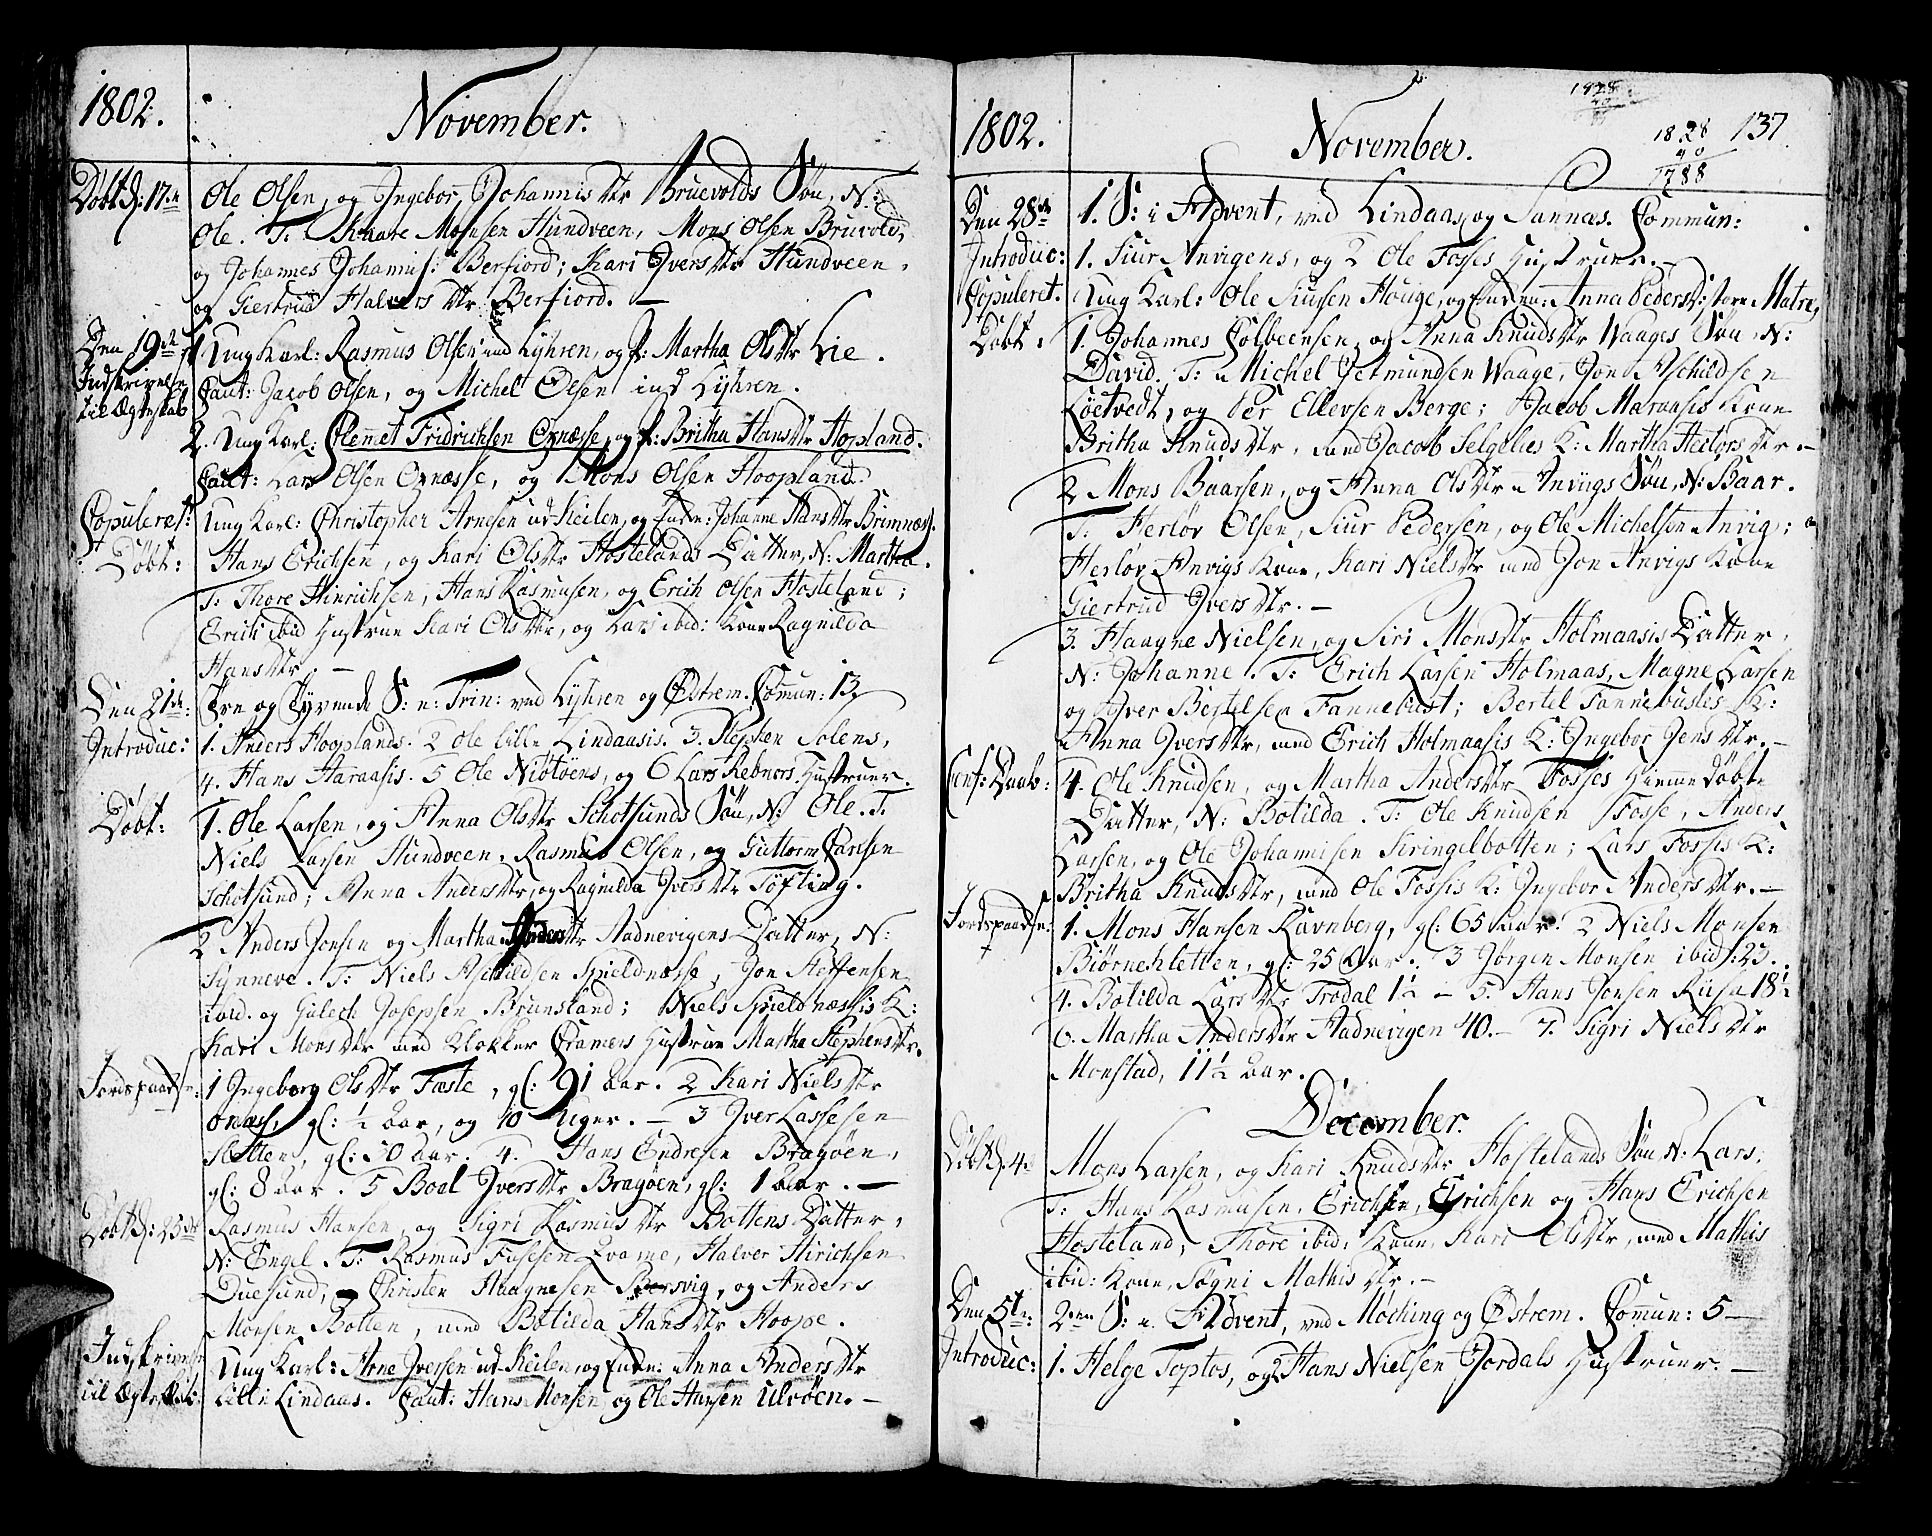 1802.
November.
Døbt d: 17de
Ole Olsen, og Ingebor Johannis Dtr Bruevolds Søn, N:
Ole. T: Knare Monsen Hundveen, Mons Olsen Bruvold,
og Johannes Johannis: Berfiord; Kari Ivers Dtr Hundveen,
og Giertrud Halvers Dtr Berfiord. —
Den 19de
Indskrivelse
til Ægteskab
1 Ung Karl: Rasmus Olsen ind Lyhren, og P: Martha Ols Dtr Lie.
Caut: Jacob Olsen, og Michel Olsen ind Lyhren.
2. Ung Karl: Clemet Fridrichsen Oxnæsse, og P: Britha Hans Dtr Hopland.
Caut: Lars Olsen Oxnæsse, og Mons Olsen Hoopland.
Copuleret:
Ung Karl: Christopher Arnesen ud Keilen, og Enken: Johanne Hans Dtr Brimnæs.
Døbt:
Hans Erichsen, og Kari Ols Dtr Hostelands Datter, N: Martha.
T: Thore Hinrichsen, Hans Rasmusen, og Erich Olsen Hosteland;
Erich ibid Hustrue Kari Ols Dtr, og Lars ibid: Kone Ragnilda
Hans Dtr. —
Den 21de:
Een og Tyvende S: n: Trin: ved Lyhren og Østrem. Comun: 13
Introduc:
1. Anders Hooplands. 2 Ole lille Lindaasis. 3. Stephen Solens,
4. Hans Haraasis. 5 Ole Nibtøens, og 6 Lars Rebnors Hustruer.
Døbt:
1. Ole Larsen, og Anna Ols Dtr Schotsunds Søn, N: Ole. T.
Niels Larsen Hundveen, Rasmus Olsen, og Guttorm Larsen
Schotsund; Anna Anders Dtr, og Ragnilda Ivers Dtr Tøfting.
2 Anders Jonsen og Martha Anders Dtr Aadnevigens Datter, N:
Synneve. T: Niels Aschildsen Spieldnæsse, Jon Steffensen
ibid. og Gulech Josepsen Brunsland; Niels Spieldnæssis K:
Kari Mons Dtr med Klokker Cramers Hustrue Martha Stephens Dtr.
Jordspaadse:
1 Ingeborg Ols Dtr Fæste, gl: 91 Aar. 2 Kari Niels Dtr
Onæs, gl: ½ Aar, og 10 Uger. — 3 Iver Lassesen
Sletten, gl: 50 Aar. 4. Hans Endresen Bragøen,
gl: 8 Aar. 5 Boel Ivers Dtr Bragøen, gl: 1 Aar. —
Døbt d: 25de
Rasmus Hansen, og Sigri Rasmus Dtr Bottens Datter,
N: Engel. T: Rasmus Fussesen Qvame, Halver Hirichsen
Duesund, Christen Haagnesen Bersvig, og Anders
Monsen Botten, med Botilda Hans Dtr Hoope.
Indskrivelse
til Ægteskab:
Ung Karl: Arne Iversen ud Keilen, og Enken: Anna Anders Dtr
lille Lindaas. Caut: Hans Monsen og Ole Hansen Ulvøen. —
1802.
November.
1828
40
1828
40
1788
137
Den 28de
1. S: i Advent, ved Lindaas og Sannas. Commun:
Introduc:
1. Siur Anvigens, og 2 Ole Fosses Hustruer. —
Copuleret.
Ung Karl: Ole Siursen Houge, og Enken: Anna Peders D: store Matre,
Døbt.
1. Johannes Colbeensen, og Anna Knuds Dtr Waages Søn, N:
David. T: Michel Germundsen Waage, Jon Aschildsen
Løetvedt, og Per Ellevsen Berge; Jacob Maraasis Kone
Britha Knuds Dtr, med Jacob Selgelies K: Martha Hectors Dtr. —
2 Mons Baarsen, og Anna Ols Dtr Anvigs Søn, N: Baar.
T: Herløv Olsen, Siur Pedersen, og Ole Michelsen Anvig;
Herløv Anvigs Kone, Kari Niels Dtr med Jon Anvigs Kone
Giertrud Ivers Dtr. —
3. Haagne Nielsen, og Siri Mons Dtr Holmaasis Datter,
N: Johanne. T: Erich Larsen Holmaas, Magne Larsen
og Iver Bertelsen Fannebust; Bertel Fannebustes K:
Anna Ivers Dtr, med Erich Holmaasis K: Ingebor Jens Dtr. —
Conf: Daab:
4. Ole Knudsen, og Martha Anders Dtr Fosses Hiemedøbte
Datter, N: Botilda. T: Ole Knudsen Fosse, Anders
Larsen, og Ole Johannisen Kringelbotten; Lars Fossis K:
Britha Knuds Dtr, med Ole Fossis K: Ingebor Anders Dtr. —
Jordspaadse:
1. Mons Hansen Ravnberg, gl: 65 Aar. 2 Niels Monsen
Biørnesletten, gl: 25 Aar. 3 Jørgen Monsen ibid: 23.
4. Botilda Lars Dtr Trodal 1½ — 5. Hans Jonsen Riisa 18½
6. Martha Anders Dtr Aadnevigen 40. — 7. Sigri Niels Dtr
Monstad, 11½ Aar.
December.
Døbt d. 4de
Mons Larsen, og Kari Knuds Dtr Hostelands Søn, N: Lars.
T: Hans Rasmusen, Erichsen, Erichsen og Hans Erichsen
Hosteland; Thore ibid: Kone, Kari Ols Dtr, med Mathis
ibid: Kone, Søgni Mathis Dtr. —
Den 5te:
2den S: i Advent, ved Moching og Østrem. Comun: 5 —
Introduc:
1. Helge Toptos, og 2 Hans Nielsen Jordals Hustruer. —